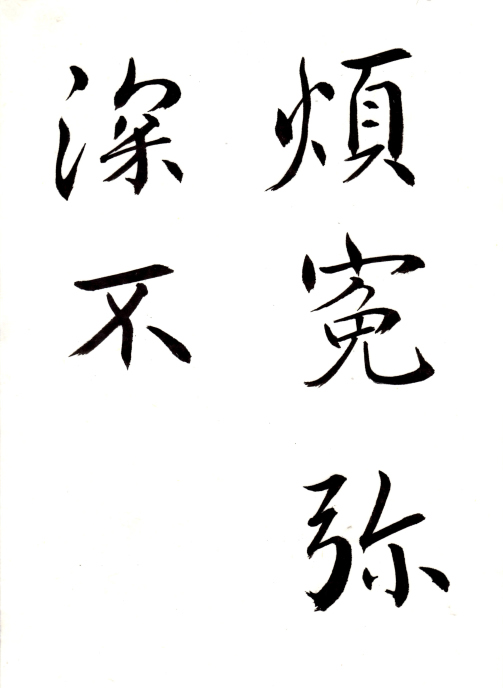 煩寃弥
深不